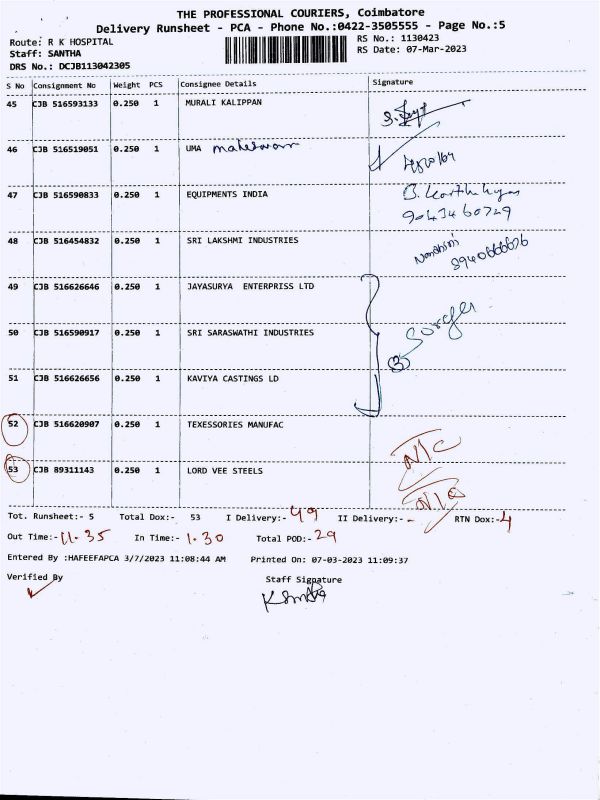 THE PROFESSIONAL COURIERS, Coimbatore
Delivery Runsheet - PCA - Phone No.:0422-3505555 - Page No.:5
Route: R K HOSPITAL
RS No.: 1130423
Staff: SANTHA
RS Date: 07-Mar-2023
DRS No.: DCJB113042305
S No Consignment No Weight PCS Consignee Details Signature
45 CJB 516593133 0.250 1 MURALI KALIPPAN
46 CJB 516519051 0.250 1 UMA maheswari
47 CJB 516590833 0.250 1 EQUIPMENTS INDIA B. Karthikeyan
9043460729
48 CJB 516454832 0.250 1 SRI LAKSHMI INDUSTRIES
49 CJB 516626646 0.250 1 JAYASURYA ENTERPRISS LTD
50 CJB 516590917 0.250 1 SRI SARASWATHI INDUSTRIES
3
51 CJB 516626656 0.250 1 KAVIYA CASTINGS LD
52 CJB 516620907 0.250 1 TEXESSORIES MANUFAC N/C
53 CJB 89311143 0.250 1 LORD VEE STEELS N/C
Tot. Runsheet:- 5 Total Dox:- 53 I Delivery:- 49 II Delivery:- - RTN Dox:- 4
Out Time:- 11.35 In Time:- 1.30 Total POD:- 29
Entered By :HAFEEFAPCA 3/7/2023 11:08:44 AM Printed On: 07-03-2023 11:09:37
Verified By Staff Signature